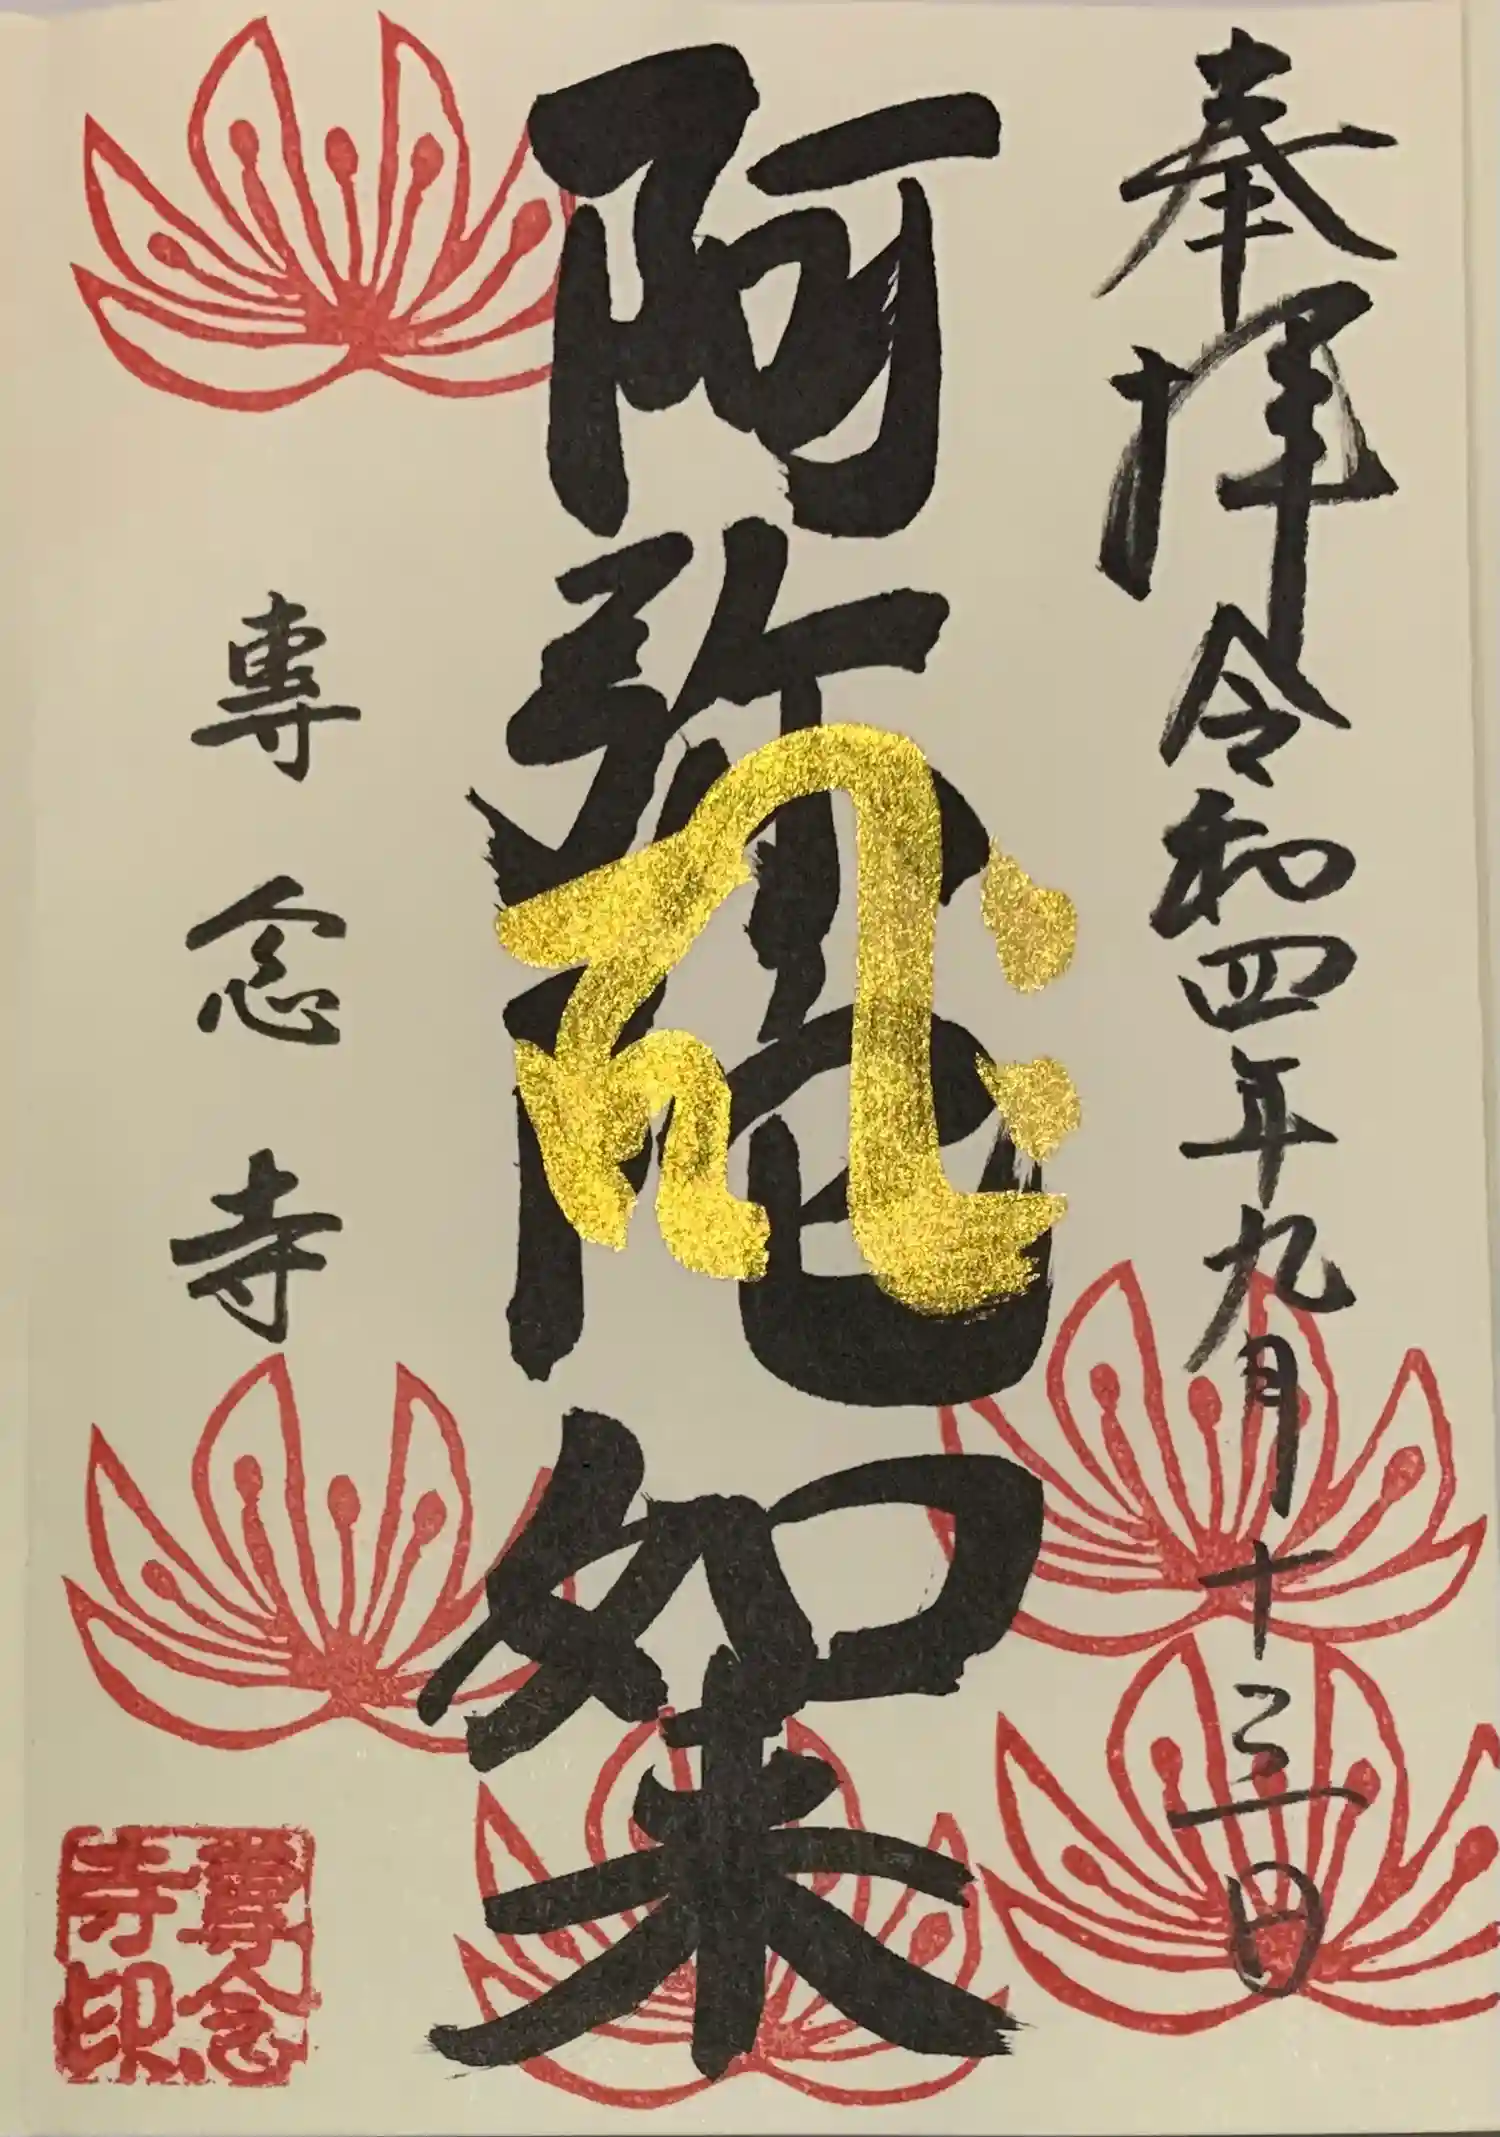 奉拝 令和四年九月十三日
阿弥陀如来
𑖮𑖿𑖨𑖱𑖾
專念寺
專念
寺印